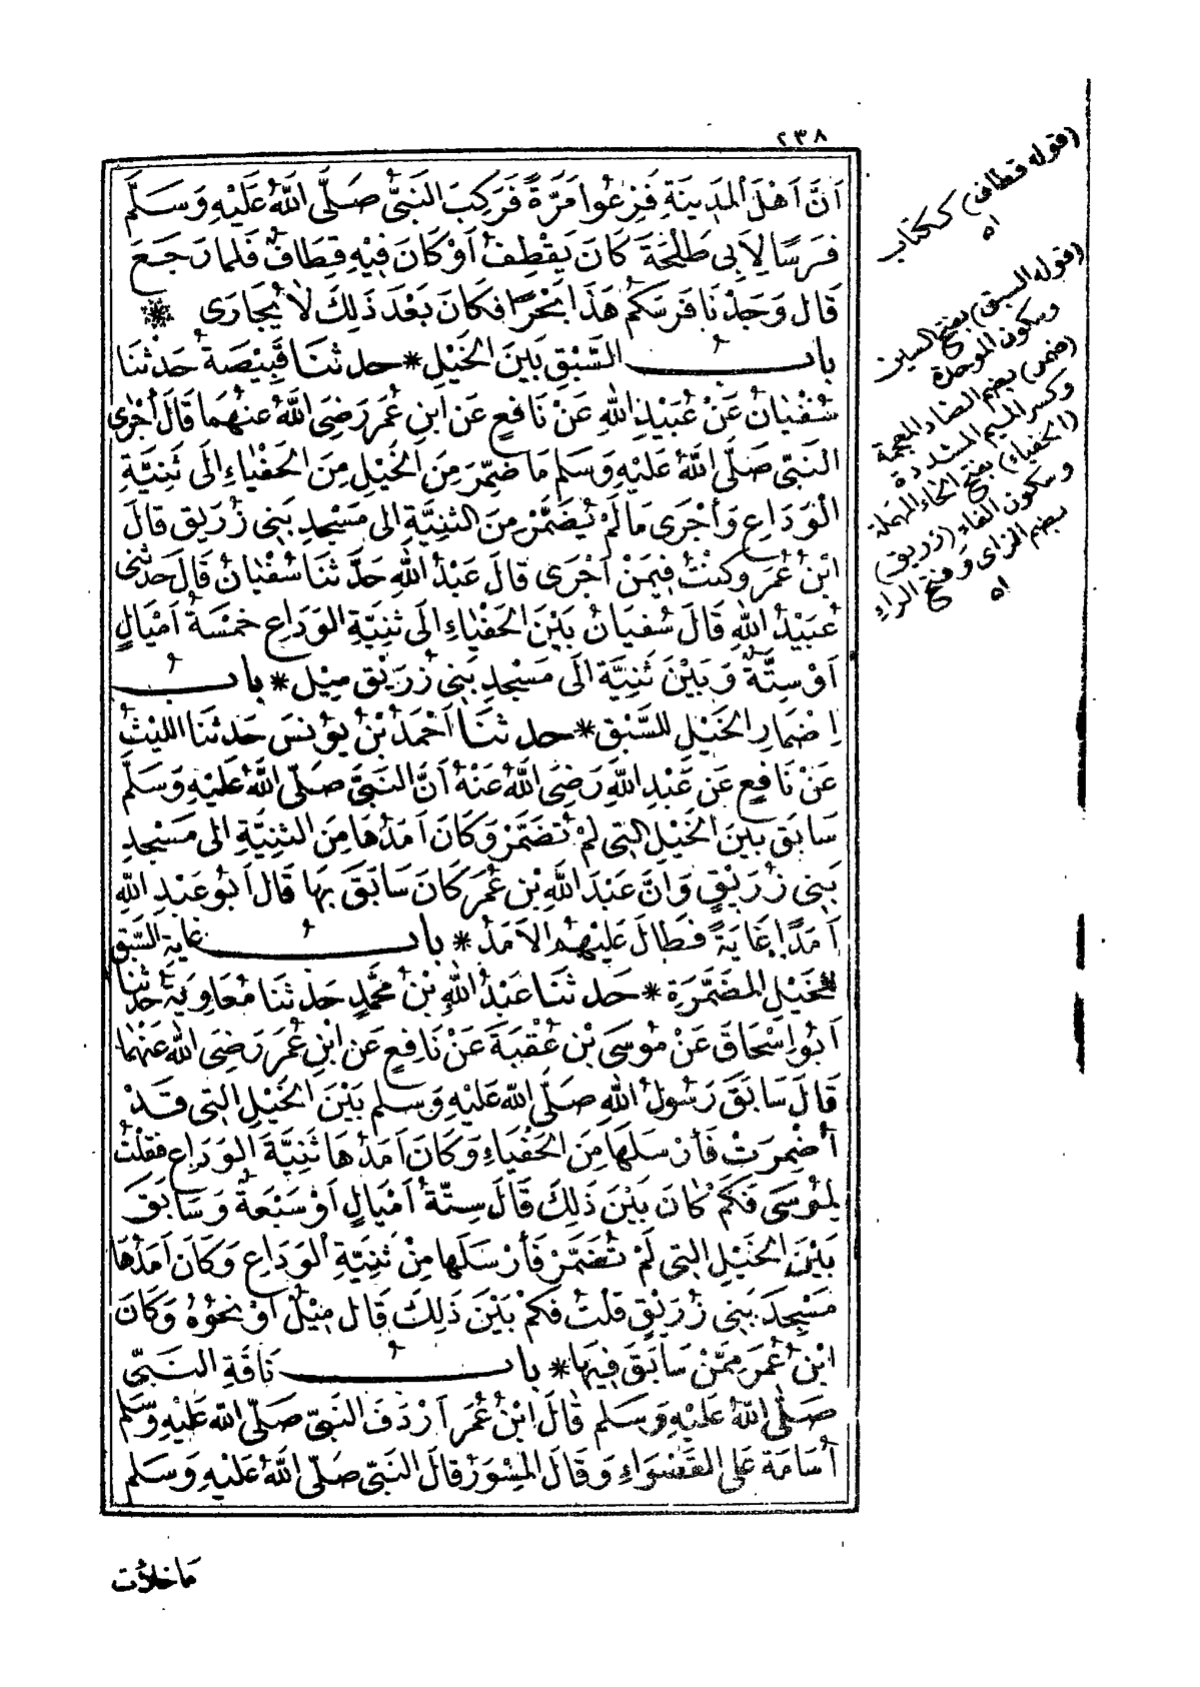 ٢٣٨
أَنَّ أَهْلَ الْمَدِينَةِ فَزِعُوا مَرَّةً فَرَكِبَ النَّبِىُّ صَلَّى اللَّهُ عَلَيْهِ وَسَلَّمَ
فَرَسًا لِأَبِى طَلْحَةَ كَانَ يَقْطِفُ أَوْ كَانَ فِيهِ قِطَافٌ فَلَمَّا رَجَعَ
قَالَ وَجَدْنَا فَرَسَكُمْ هَذَا بَحْرًا فَكَانَ بَعْدَ ذَلِكَ لَا يُجَارَى *
بابُ السَّبْقِ بَيْنَ الخَيْلِ * حدثنَا قَبِيْصَةُ حَدثَنَا
سُفْيَانُ عَنْ عُبَيْدِ اللهِ عَنْ نَافِعٍ عَنِ ابنِ عُمَرَ رَضِىَ اللَّهُ عَنْهُمَا قَالَ أَجْرَى
النَّبِىّ صَلَّى اللَّهُ عَلَيْهِ وَسَلم مَا ضُمِّرَ مِنَ الخَيْلِ مِنَ الحَفْيَاءِ إلَى ثَنِيَّةِ
الْوَدَاعِ وَأَجْرَى مَا لَمْ يُضَمَّرْ مِنَ الثنِيَّةِ إلى مَسْجِدِ بَنِى زُرَيْقٍ قَالَ
ابْنُ عُمَرَ وكُنْتُ فِيمَنْ أجْرَى قَالَ عَبْدُ اللهِ حَدَّثنَا سُفْيَانُ قَالَ حَدثَنِى
عُبَيْدُ اللهِ قَالَ سُفيَانُ بَيْنَ الحَفْيَاءِ الَى ثَنِيَّةِ الوَدَاعِ خَمْسَةُ أَمْيَالٍ
أَوْ سِتَّةٌ وَبَيْنَ ثَنِيَّة الَى مَسْجِدِ بَنِى زُرَيْقٍ مِيْل * بابُ
إضْمَارِ الخَيْلِ للسَّبْقِ * حدثنَا أَحْمَدُ بْنُ يُونسَ حَدثنَا الليْثُ
عَنْ نَافِعٍ عَن عَبْدِ اللهِ رَضِىَ اللَّهُ عَنْهُ أَنَّ النَّبِىَّ صَلَّى اللَّهُ عَلَيْهِ وَسَلَّمَ
سَابَقَ بَيْنَ الخَيْلِ التِى لَمْ تُضَمَّرْ وَكَانَ أَمَدُهَا مِنَ الثنِيَّةِ الى مَسْجِدِ
بَنِى زُرَيْقٍ وَانَّ عَبْدَ اللَّهِ بْنَ عُمَرَ كَانَ سَابَقَ بِهَا قَالَ أبُو عَبْدِ اللهِ
أَمَدًا غَايَةً فَطَالَ عَلَيْهِمُ الأَمَدُ * بابُ غايةِ السَّبْقِ
للخَيْلِ المُضَمَّرَةِ * حَدثنَا عَبْدُ اللَّهِ بْنُ مُحَمَّدٍ حَدثنَا مُعَاوِيَةُ حَدثنَا
أبُو إسْحَاقَ عَنْ مُوسَى بْنِ عُقْبَةَ عَنْ نَافِعٍ عَنِ ابْنِ عُمَرَ رَضِىَ اللهُ عَنْهُمَا
قَالَ سَابَقَ رَسُولُ اللهِ صَلَّى اللهُ عَلَيْهِ وَسَلم بَيْنَ الخَيْلِ التِى قَدْ
أُضْمِرَتْ فَأَرْسَلَهَا مِنَ الحَفْيَاءِ وَكَانَ أَمَدُهَا ثَنِيَّةَ الوَدَاعِ فقلْتُ
لِمُوسَى فَكَمْ كَانَ بَيْنَ ذَلِكَ قَالَ سِتَّةُ أَمْيَالٍ أَوْ سَبْعَةٌ وَسَابَقَ
بَيْنَ الخَيْلِ التِى لَمْ تُضَمَّرْ فَأَرْسَلَهَا مِنْ ثَنِيَّةِ الوَدَاعِ وَكَانَ أَمَدُهَا
مَسْجِدَ بَنِى زُرَيْقٍ قُلتُ فَكَمْ بَيْنَ ذَلِكَ قَالَ مِيْلٌ أوْ نَحْوُهُ وَكَانَ
ابْنُ عُمَرَ مِمَّنْ سَابَقَ فِيهَا * بابُ نَاقَةِ النَّبِىِّ
صَلَّى اللَّهُ عَلَيْهِ وَسَلم قَالَ ابْنُ عُمَرَ أَرْدَفَ النَّبِىّ صَلَّى اللهُ عَلَيْهِ وَسَّلَم
أُسَامَةَ عَلى القَصْوَاءِ وَقَالَ المِسْوَرُ قَالَ النَّبِىّ صَلَّى اللَّهُ عَلَيْهِ وَسَلم
مَا خلأت
(قوله قطاف) ككتاب
اه
(قوله السبق) بفتح السين
وسكون الموحدة
(ضمر) بضم الضاد المعجمة
وكسر الميم المشددة
(الحفياء) بفتح الحاء المهملة
وسكون الفاء (زريق)
بضم الزاى وفتح الراء
اه